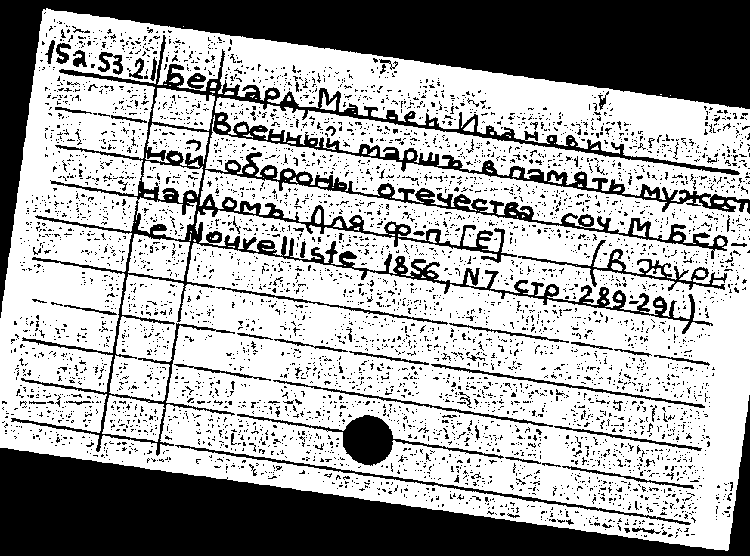 15a.53.2. Бернард, Матвей Иванович
Военный маршъ в память мужест
ной обороны отечества соч. М. Бер-
нардомъ. Для ф-п. [E] (В журн
Le Nouvelliste, 1856, N7, стр. 289-291)